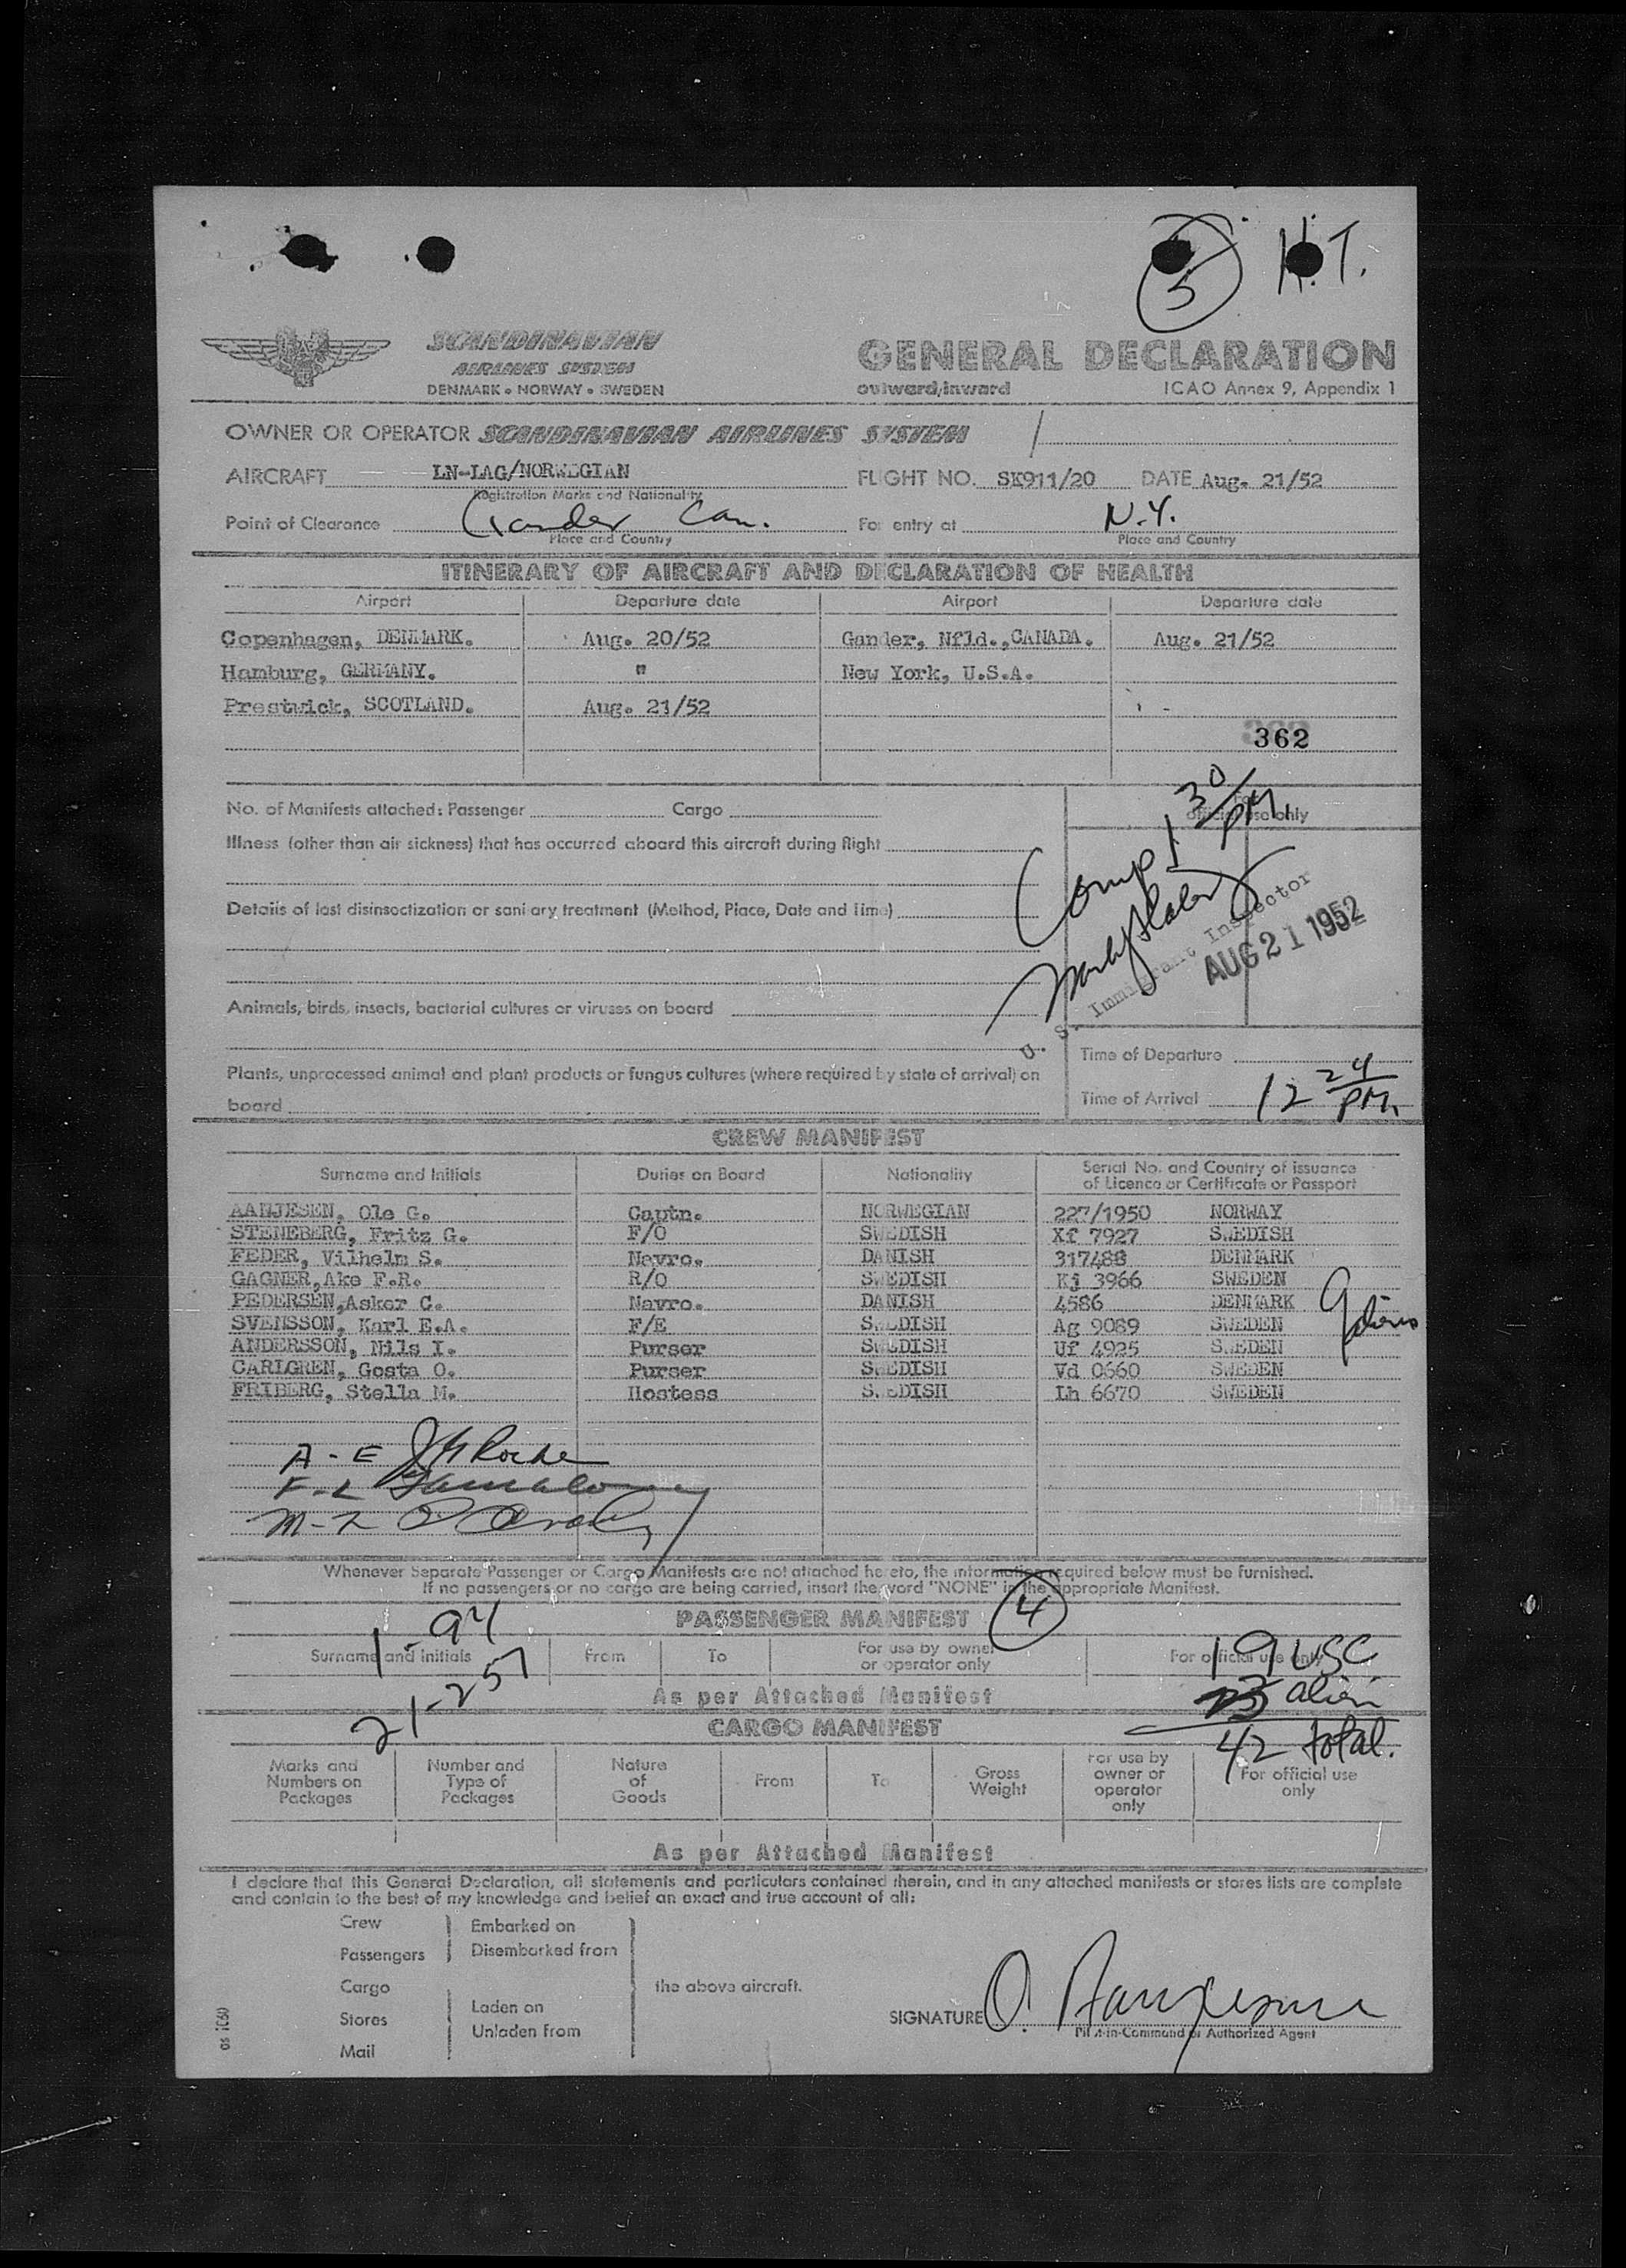 5 H.T.
SCANDINAVIAN
AIRLINES SYSTEM
DENMARK • NORWAY • SWEDEN
GENERAL DECLARATION
outward/inward ICAO Annex 9, Appendix 1
OWNER OR OPERATOR SCANDINAVIAN AIRLINES SYSTEM
AIRCRAFT LN-LAG/NORWEGIAN FLIGHT NO. SK911/20 DATE Aug. 21/52
Registration Marks and Nationality
Point of Clearance Gander Can. For entry at N.Y.
Place and Country Place and Country
ITINERARY OF AIRCRAFT AND DECLARATION OF HEALTH
Airport Departure date Airport Departure date
Copenhagen, DENMARK. Aug. 20/52 Gander, Nfld.,CANADA. Aug. 21/52
Hamburg, GERMANY. " New York, U.S.A.
Prestwick, SCOTLAND. Aug. 21/52
362
No. of Manifests attached: Passenger Cargo
For official use only
Comp 1 30 PM.
Illness (other than air sickness) that has occurred aboard this aircraft during flight
Details of last disinsectization or sanitary treatment (Method, Place, Date and Time)
U. S. Immigrant Inspector
AUG 21 1952
Animals, birds, insects, bacterial cultures or viruses on board
Time of Departure
Plants, unprocessed animal and plant products or fungus cultures (where required by state of arrival) on
board
Time of Arrival 12 24 PM.
CREW MANIFEST
Surname and Initials Duties on Board Nationality Serial No. and Country of issuance
of Licence or Certificate or Passport
AANJESEN, Ole G. Captn. NORWEGIAN 227/1950 NORWAY
STENEBERG, Fritz G. F/O SWEDISH Xf 7927 SWEDISH
FEDER, Vilhelm S. Navro. DANISH 317488 DENMARK
GAGNER,Ake F.R. R/O SWEDISH Kj 3966 SWEDEN
PEDERSEN,Asker C. Navro. DANISH 4586 DENMARK
SVENSSON, Karl E.A. F/E SWEDISH Ag 9089 SWEDEN
ANDERSSON, Nils I. Purser SWEDISH Uf 4925 SWEDEN
CARLGREN, Gosta O. Purser SWEDISH Vd 0660 SWEDEN
FRIBERG, Stella M. Hostess SWEDISH Lh 6670 SWEDEN
9 aliens
A - E
F - L
M - Z
Whenever Separate Passenger or Cargo Manifests are not attached hereto, the information required below must be furnished.
If no passengers or no cargo are being carried, insert the word "NONE" in the appropriate Manifest.
PASSENGER MANIFEST 4
1-94
Surname and Initials From To For use by owner
or operator only For official use only
19 USC
21-257
As per Attached Manifest
23 alien
CARGO MANIFEST
42 total.
Marks and Numbers on Packages Number and Type of Packages Nature of Goods From To Gross Weight For use by owner or operator only For official use only
As per Attached Manifest
I declare that this General Declaration, all statements and particulars contained therein, and in any attached manifests or stores lists are complete
and contain to the best of my knowledge and belief an exact and true account of all:
Crew Embarked on
Passengers Disembarked from
Cargo the above aircraft.
Stores Laden on
Unladen from
Mail
SIGNATURE O. Aanjesen
Pilot-in-Command or Authorized Agent